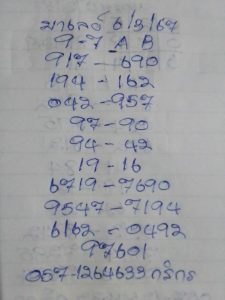 มาเลย์ 6/3/67
9-7 A B
917-690
194-162
042-957
97-90
94-42
19-16
6719-7690
9547-7194
6162-0492
97601
057-1264633 กริกร